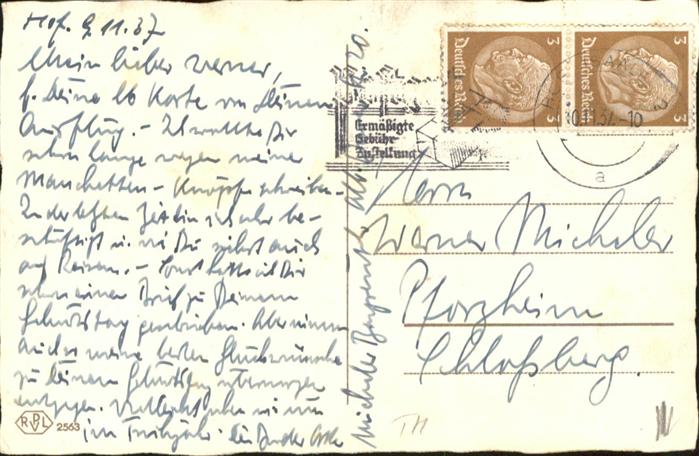 Hof. 9.11.37
Mein lieber Werner,
f. Deine lb Karte von Deinem
Ausflug. – Ich wollte Dir
schon lange wegen meine
Manschetten-Knöpfe schreiben.
In der letzten Zeit bin ich sehr be-
schäftigt u. wie Du siehst auch
auf Reisen. – Sonst hätte ich Dir
schon einen Brief zu Deinem
Geburtstag geschrieben. Aber nimm
auch so meine besten Glückwünsche
zu Deinem Geburtstag übermorgen
entgegen. Vielleicht sehen wir uns
im Frühjahr. Dein Bruder
Michaler Bayreuth
20.
Ermäßigte
Gebühr
Zustellung
3
Deutsches Reich
3
Deutsches Reich
37.-10
a
Herrn
Werner Michaler
Pforzheim
Schloßberg.
RVPL
2563